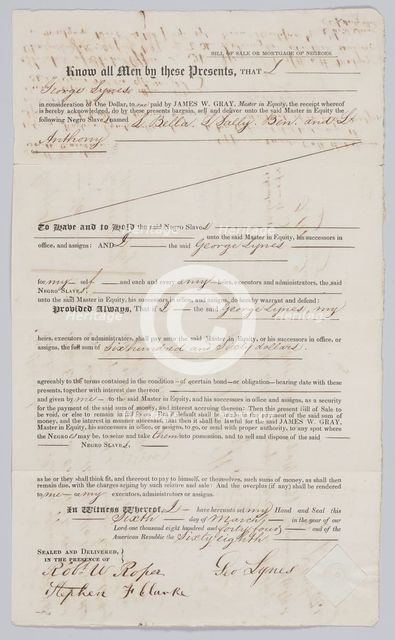 BILL OF SALE OR MORTGAGE OF NEGROES.
Know all Men by these Presents, THAT I
George Synes
in consideration of One Dollar, to me paid by JAMES W. GRAY, Master in Equity, the receipt whereof
is hereby acknowledged, do by these presents bargain, sell and deliver unto the said Master in Equity the
following Negro Slaves named Bella, Sally, Ben, and
Anthony
To Have and to Hold the said Negro Slaves
unto the said Master in Equity, his successors in
office, and assigns: AND I the said George Synes
for my self and each and every of my heirs, executors and administrators, the said
NEGRO SLAVES.
unto the said Master in Equity, his successors in office, and assigns, do hereby warrant and defend:
Provided Always, That if I the said George Synes, my
heirs, executors or administrators, shall pay unto the said Master in Equity, or his successors in office, or
assigns, the full sum of Six hundred and Sixty dollars.
agreeably to the terms contained in the condition of a certain bond or obligation bearing date with these
presents, together with interest due thereon
and given by me to the said Master in Equity, and his successors in office and assigns, as a security
for the payment of the said sum of money, and interest accruing thereon: Then this present Bill of Sale to
be void, or else to remain in full force. But if default shall be made in the payment of the said sum of
money, and the interest in manner aforesaid, that then it shall be lawful for the said JAMES W. GRAY,
Master in Equity, his successors in office, or assigns, to go, or send with proper authority, to any spot where
the NEGROES may be, to seize and take them into possession, and to sell and dispose of the said
NEGRO SLAVES,
as he or they shall think fit, and thereout to pay to himself, or themselves, such sums of money, as shall
remain due, with the charges arising by such seizure and sale: And the overplus (if any) shall be rendered
to me or my executors, administrators or assigns.
In Witness Whereof, I have hereunto set my Hand and Seal this
Sixth day of March in the year of our
Lord one thousand eight hundred and forty four and of the
American Republic the Sixty eighth
SEALED AND DELIVERED,
IN THE PRESENCE OF
Robt. W Roper
Geo Synes
Stephen F Clarke
heritage